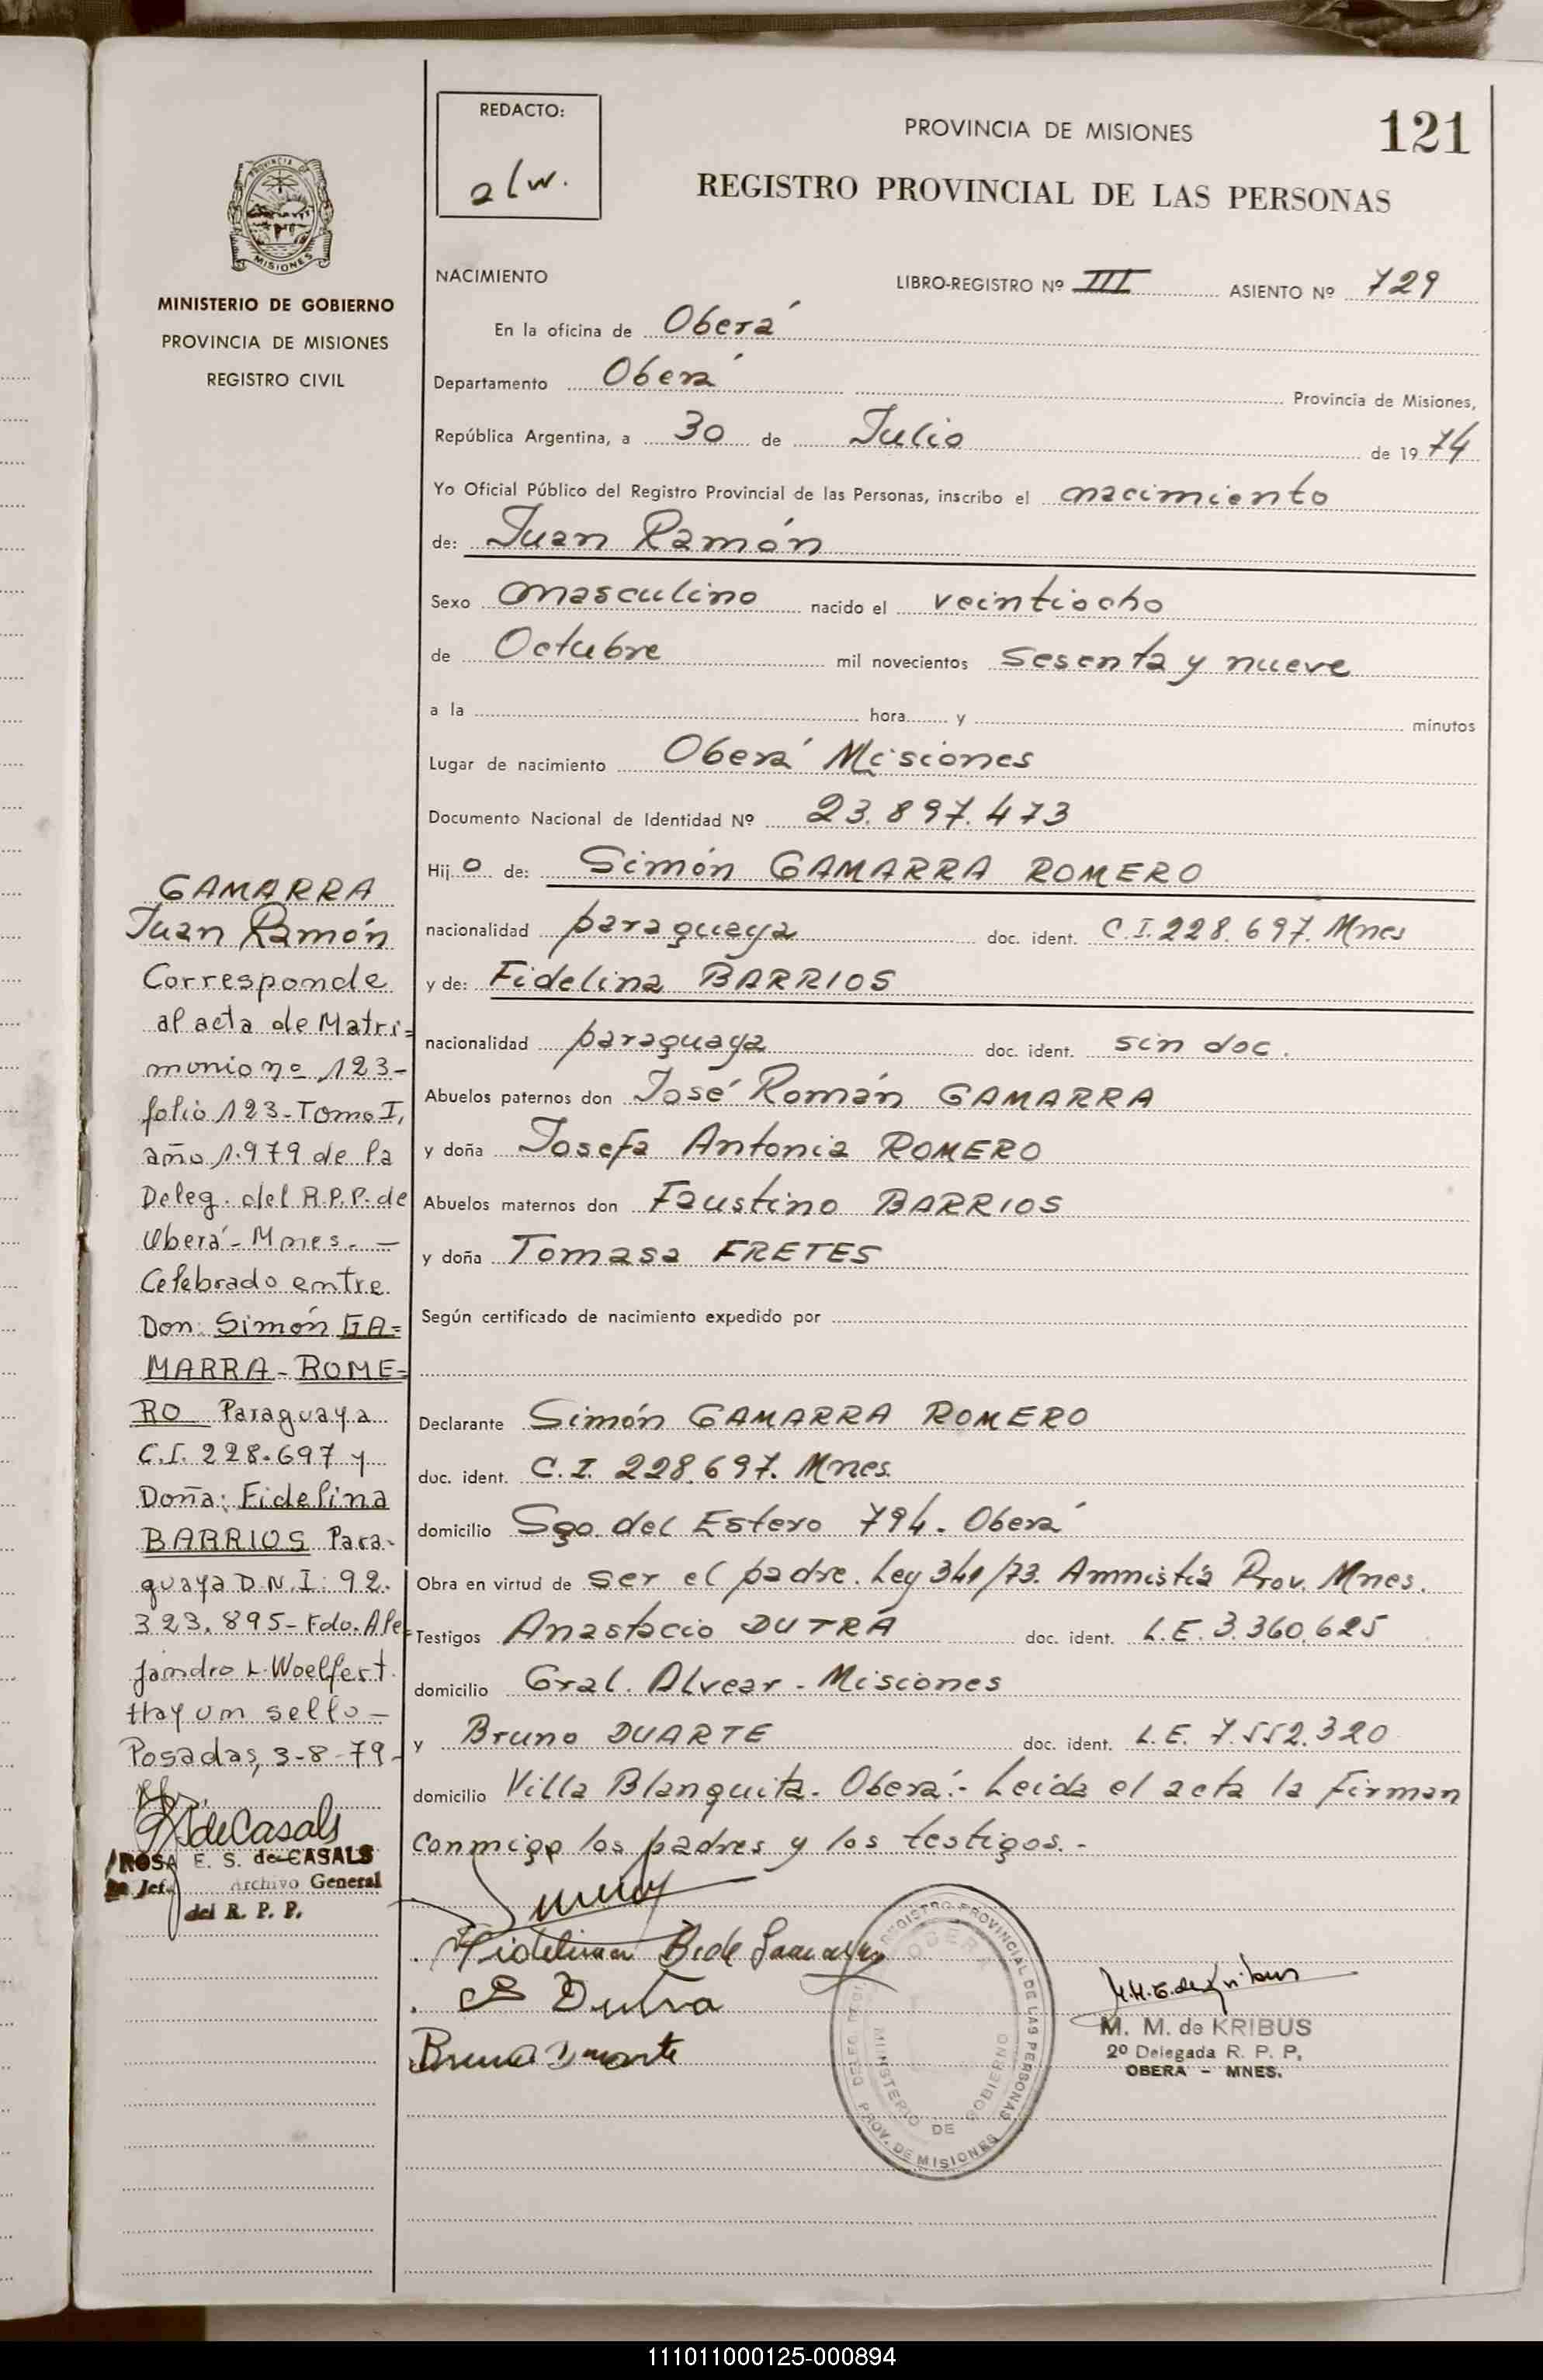 REDACTO:
alw.
PROVINCIA DE MISIONES
121
REGISTRO PROVINCIAL DE LAS PERSONAS
PROVINCIA DE
MISIONES
MINISTERIO DE GOBIERNO
PROVINCIA DE MISIONES
REGISTRO CIVIL
NACIMIENTO LIBRO-REGISTRO Nº III ASIENTO Nº 729
En la oficina de Oberá
Departamento Oberá Provincia de Misiones,
República Argentina, a 30 de Julio de 1974
Yo Oficial Público del Registro Provincial de las Personas, inscribo el nacimiento
de: Juan Ramón
Sexo masculino nacido el veintiocho
de Octubre mil novecientos sesenta y nueve
a la hora y minutos
Lugar de nacimiento Oberá Misiones
Documento Nacional de Identidad Nº 23.897.473
Hijo de: Simón GAMARRA ROMERO
nacionalidad paraguaya doc. ident. C.I. 228.697. Mnes
y de: Fidelina BARRIOS
nacionalidad paraguaya doc. ident. sin doc.
Abuelos paternos don José Román GAMARRA
y doña Josefa Antonia ROMERO
Abuelos maternos don Faustino BARRIOS
y doña Tomasa FRETES
Según certificado de nacimiento expedido por
Declarante Simón GAMARRA ROMERO
doc. ident. C.I. 228.697. Mnes.
domicilio Sgo. del Estero 794. Oberá
Obra en virtud de ser el padre. Ley 341/73. Amnistía Prov. Mnes.
Testigos Anastacio DUTRA doc. ident. L.E. 3.360.625
domicilio Gral. Alvear - Misiones
y Bruno DUARTE doc. ident. L.E. 7.552.320
domicilio Villa Blanquita - Oberá.- Leida el acta la firman
conmigo los padres y los testigos.-
Fidelina B de Gamarra
Dutra
Bruno Duarte
REGISTRO PROVINCIAL DE LAS PERSONAS
OBERA
MINISTERIO DE GOBIERNO
PROV. DE MISIONES
M. M. de KRIBUS
2º Delegada R. P. P.
OBERA - MNES.
GAMARRA
Juan Ramón
Corresponde
al acta de Matri=
monio nº 123-
folio 123-Tomo I,
año 1.979 de la
Deleg. del R.P.P. de
Oberá - Mnes. -
Celebrado entre
Don: Simón GA=
MARRA - ROME=
RO Paraguaya
C.I. 228.697 y
Doña: Fidelina
BARRIOS Para-
guaya D.N.I: 92.
323.895- Fdo. Ale=
jandro L. Woelfert.
Hay un sello -
Posadas, 3-8-79-
de Casals
ROSA E. S. de CASALS
Jef. Archivo General
del R. P. P.
111011000125-000894